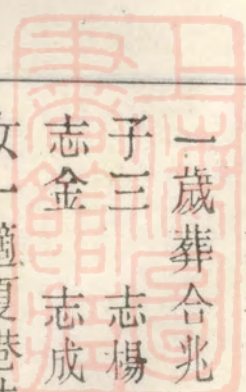 一歲葬合兆
子三　志楊
志金　志成
女一適夏港